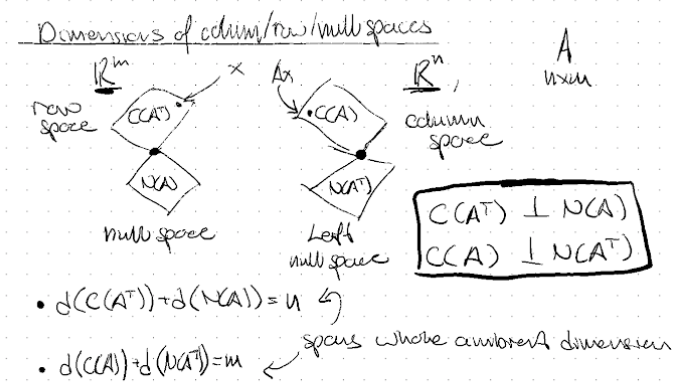 Dimensions of colum/row/null spaces
ℝᵐ x Ax ℝⁿ, A
n×m
row space C(Aᵀ) C(A) column space
N(A) N(Aᵀ)
null space Left null space
C(Aᵀ) ⊥ N(A)
C(A) ⊥ N(Aᵀ)
• d(C(Aᵀ))+d(N(A)) = n
spans whole ambient dimension
• d(C(A))+d(N(Aᵀ)) = m